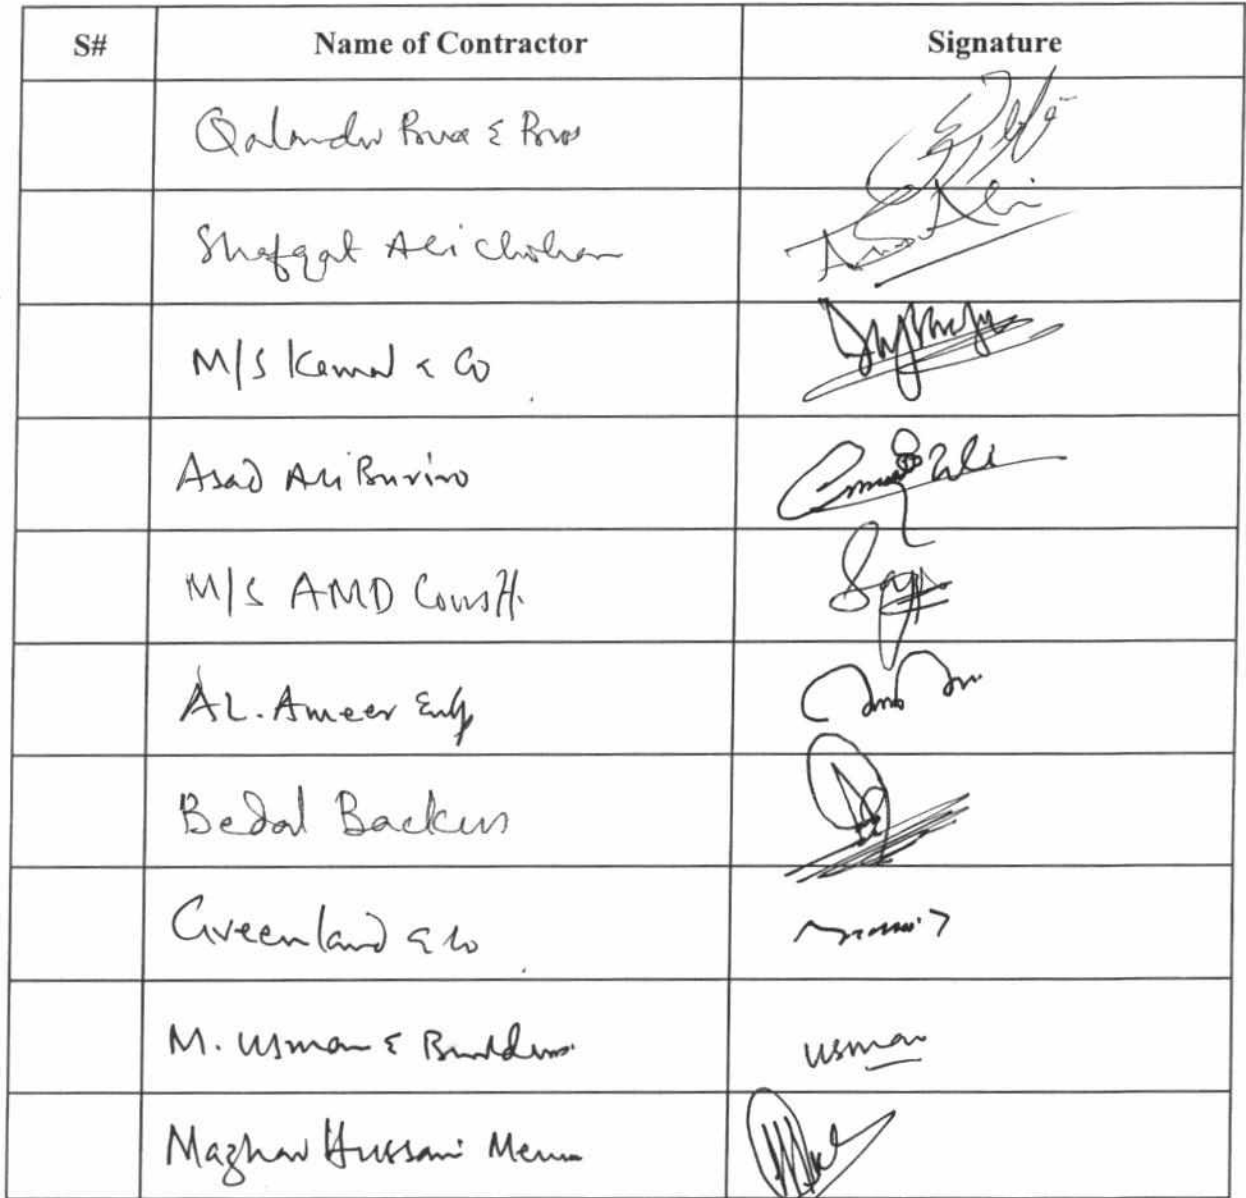 S# Name of Contractor Signature
Qalandar Bux & Bros
Shafqat Ali Chohan
M/S Kamal & Co
Asad Ali Buriro
M/S AMD Constt.
AL. Ameer Eng
Bedal Backers
Greenland & Co
M. Usman & Builders usman
Mazhar Hussain Memon